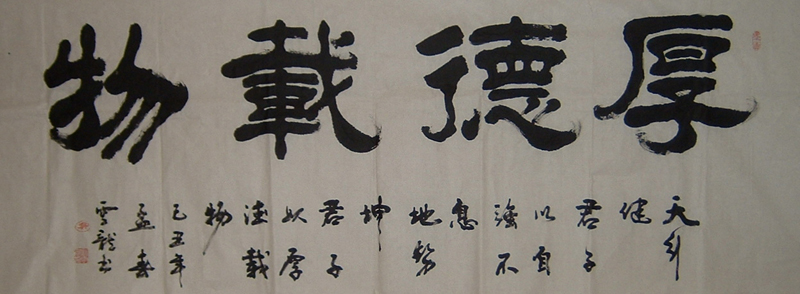 厚德載物
天行
健
君子
以自
強不
息
地勢
坤
君子
以厚
德載
物
己丑年
孟春
雪龍书